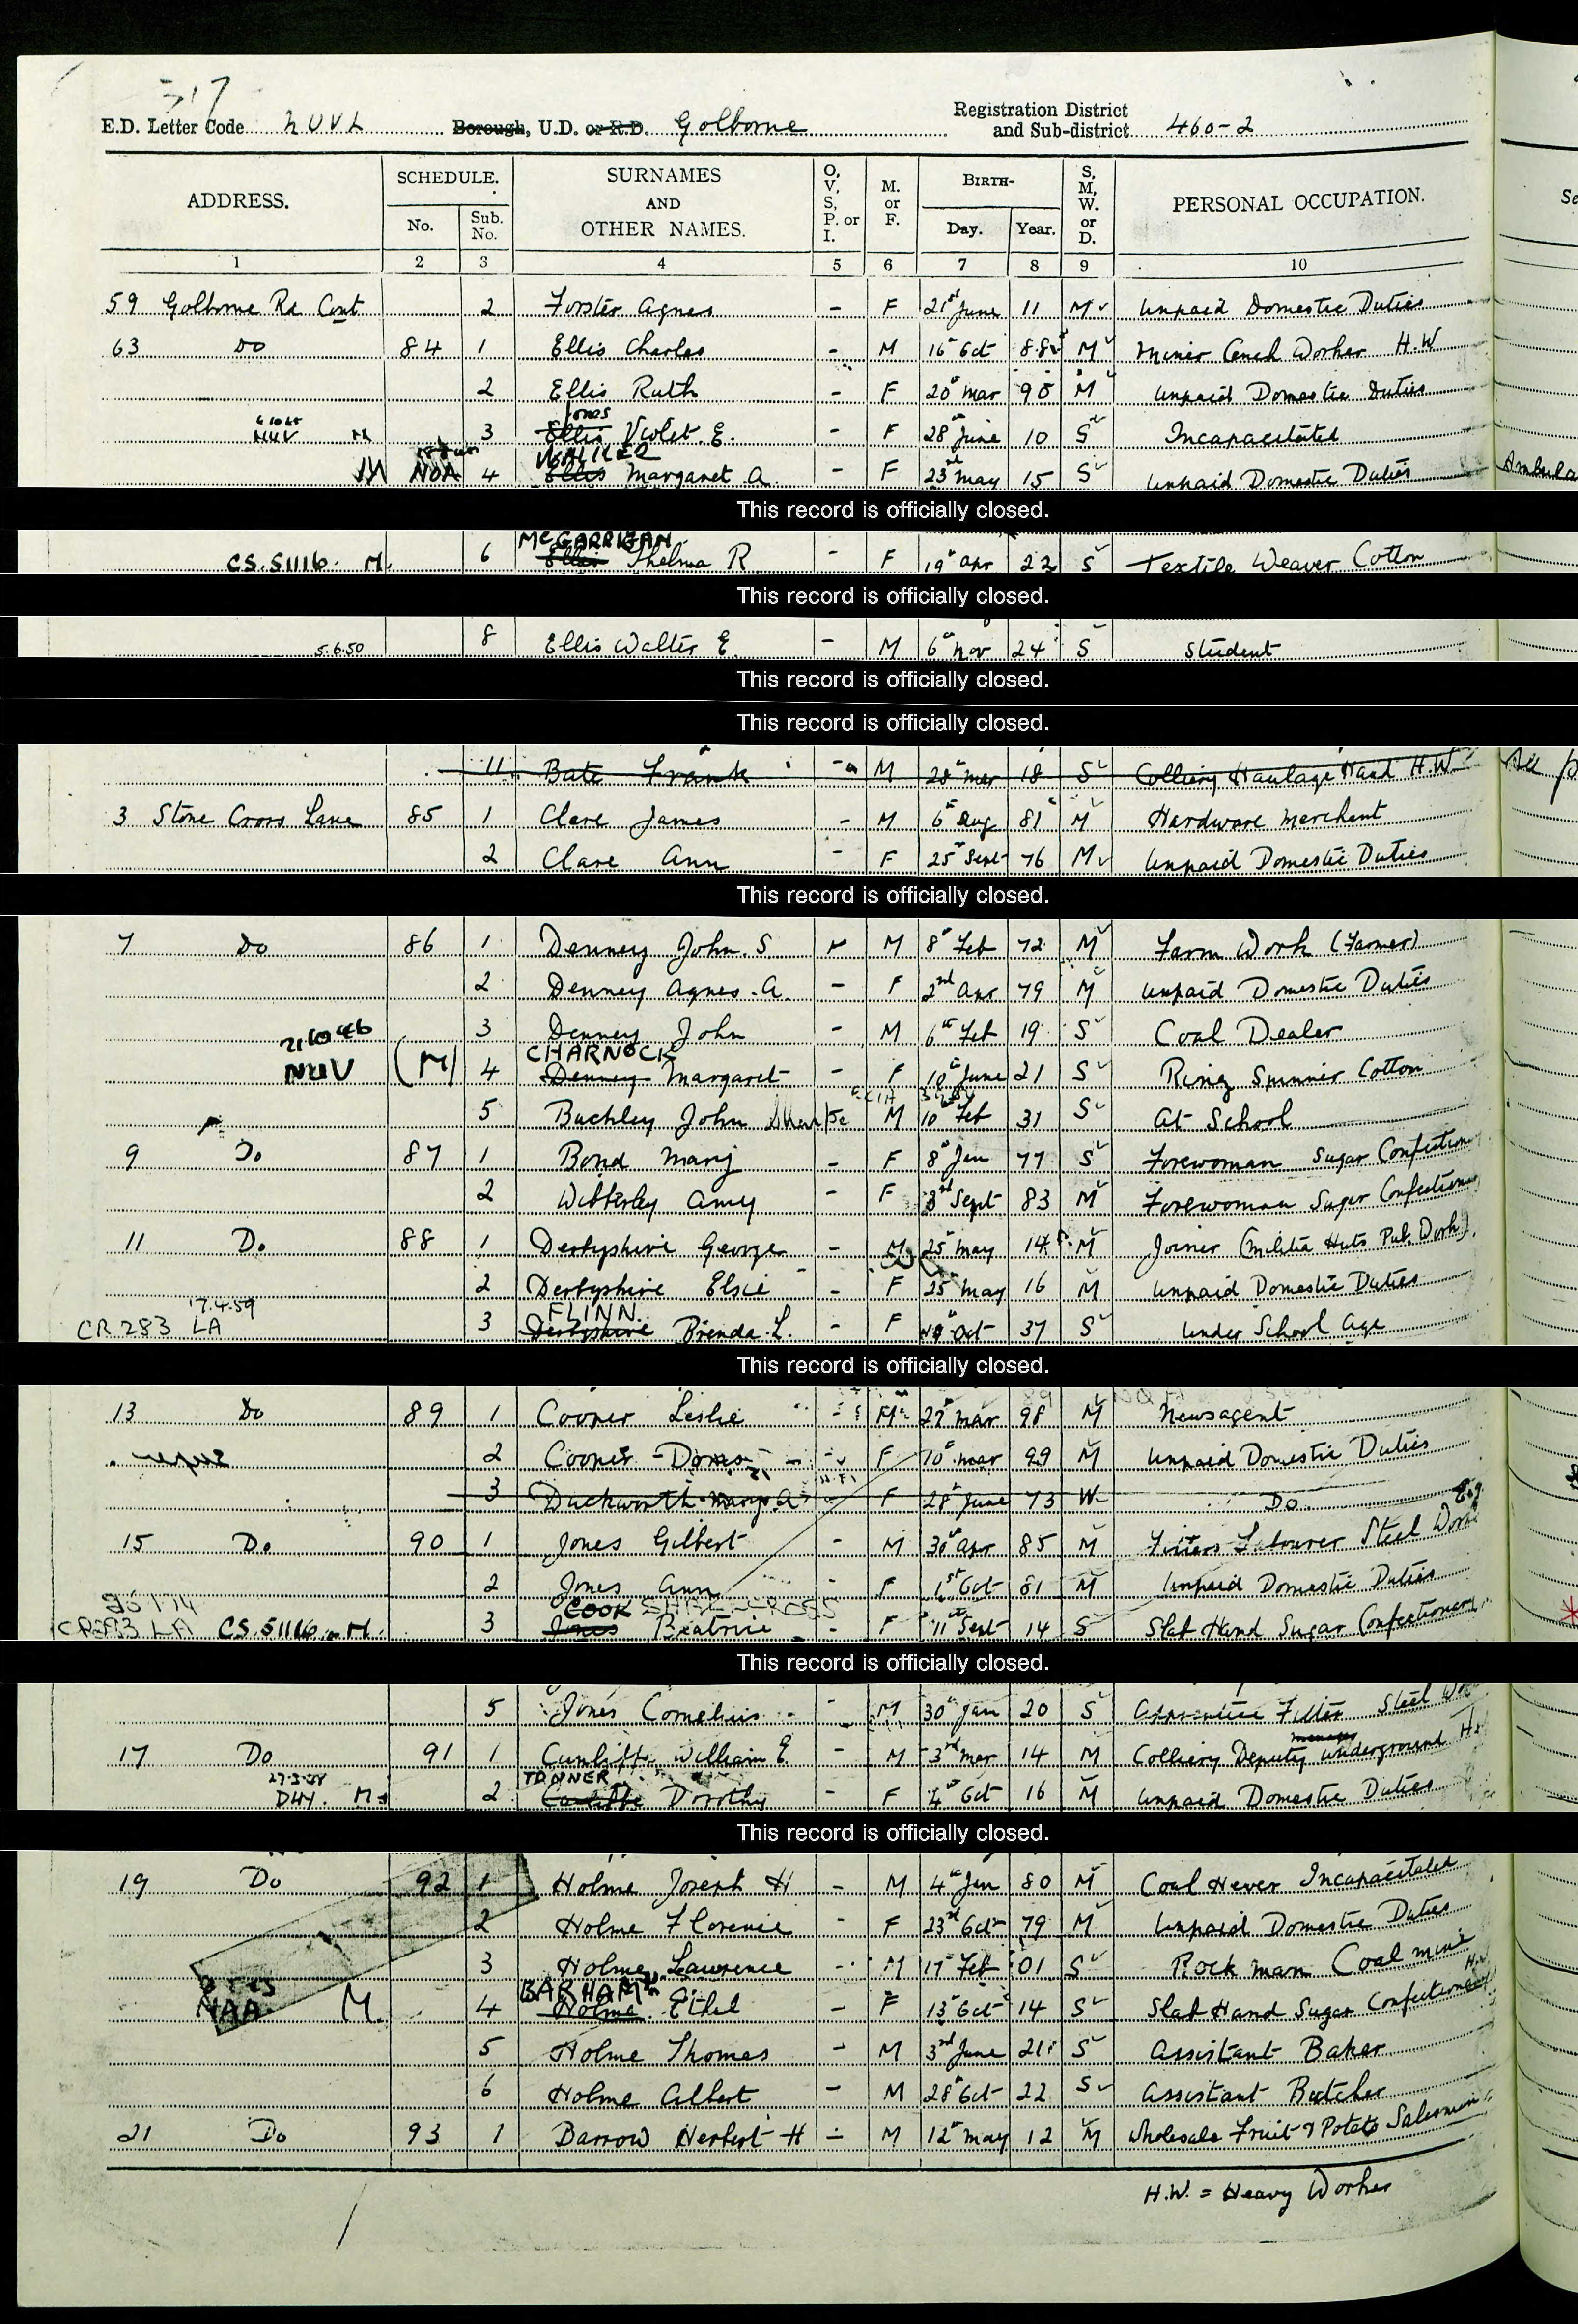 317
E.D. Letter Code NUVL Borough, U.D. or R.D. Golborne Registration District and Sub-district 460-2
ADDRESS. SCHEDULE. No. Sub. No. SURNAMES AND OTHER NAMES. O, V, S, P. or I. M. or F. BIRTH- Day. Year. S, M, W. or D. PERSONAL OCCUPATION.
1 2 3 4 5 6 7 8 9 10
59 Golborne Rd Cont 2 Forster Agnes - F 21st June 11 M Unpaid Domestic Duties
63 Do 84 1 Ellis Charles - M 16th Oct 88 M Miner H.W
2 Ellis Ruth - F 20th Mar 90 M Unpaid Domestic Duties
Jones
NUV M 3 Ellis Violet. E. - F 28th June 10 S Incapacitated
WALKER
NOA 4 Ellis Margaret A. - F 23rd May 15 S Unpaid Domestic Duties
This record is officially closed.
MCGARRIGAN
CS.51116. M. 6 Ellis Thelma R - F 19th Apr 22 S Textile Weaver Cotton
This record is officially closed.
5.6.50 8 Ellis Walter E. - M 6th Nov 24 S Student
This record is officially closed.
This record is officially closed.
11 Bate Frank - M 28th Mar 18 S Colliery Haulage Hand H.W. See p
3 Stone Cross Lane 85 1 Clare James - M 6th Aug 81 M Hardware Merchant
2 Clare Ann - F 25th Sept 76 M Unpaid Domestic Duties
This record is officially closed.
7 Do 86 1 Denney John. S M 8th Feb 72 M Farm Work (Farmer)
2 Denney Agnes. A. - F 2nd Apr 79 M Unpaid Domestic Duties
21.10.46 3 Denney John - M 6th Feb 19 S Coal Dealer
CHARNOCK
NUV (M) 4 Denney Margaret - F 10th June 21 S Ring Spinner Cotton
5 Buckley John M 10th Feb 31 S At School
9 Do 87 1 Bond Mary - F 8th Jan 77 S Forewoman Sugar Confectionery
2 Wibberley Amy - F 3rd Sept 83 M Forewoman Sugar Confectionery
11 Do 88 1 Derbyshire George - M 25th May 14 M Joiner (Militia Huts Pub. Work).
2 Derbyshire Elsie - F 25th May 16 M Unpaid Domestic Duties
17.4.59 FLINN.
CR 283 LA 3 Derbyshire Brenda. L. - F Oct 37 S Under School Age
This record is officially closed.
13 Do 89 1 Cooper Leslie - M 27th Mar 98 M Newsagent
2 Cooper Doris - F 10th Mar 99 M Unpaid Domestic Duties
3 Duckworth Mary. A - F 28th June 73 W Do
15 Do 90 1 Jones Gilbert - M 30th Apr 85 M Fitters Labourer Steel Works
2 Jones Ann - F 1st Oct 81 M Unpaid Domestic Duties
COOK
CR283 LA CS.51116. M. 3 Jones Beatrice - F 11th Sept 14 S Slab Hand Sugar Confectionery
This record is officially closed.
5 Jones Cornelius - M 30th Jan 20 S Apprentice Fitter Steel
17 Do 91 1 Cunliffe William E. - M 3rd Mar 14 M Colliery Deputy Manager Underground
TONNER
DHY. M 2 Cunliffe Dorothy - F 4th Oct 16 M Unpaid Domestic Duties
This record is officially closed.
19 Do 92 1 Holme Joseph H - M 4th Jan 80 M Coal Hewer Incapacitated
2 Holme Florence - F 23rd Oct 79 M Unpaid Domestic Duties
3 Holme Lawrence - M 17th Feb 01 S Rock man Coal mine
BARHAM
NAA. M. 4 Holme Ethel - F 13th Oct 14 S Slab Hand Sugar Confectionery
5 Holme Thomas - M 3rd June 21 S Assistant Baker
6 Holme Albert - M 28th Oct 22 S Assistant Butcher
21 Do 93 1 Barrow Herbert H - M 12th May 12 M Wholesale Fruit & Potato Salesman
H.W. = Heavy Worker